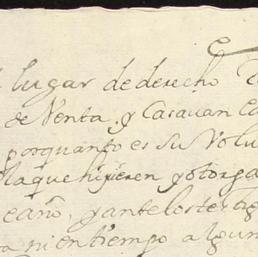 lugar de derecho
de Venta, y Casavan Ca
porquanto es su Volu
laque hizieren y otorga
eaño, y ante los testig
ni en tiempo algun